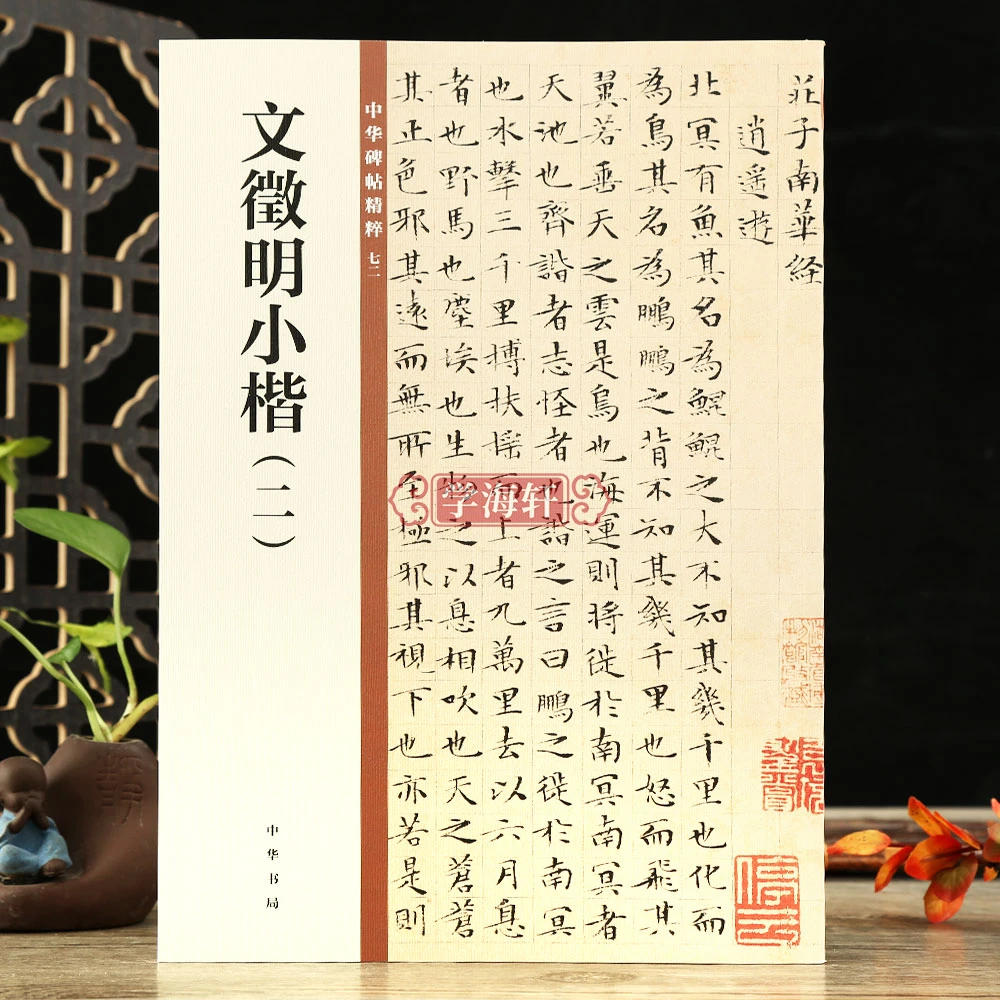 文徵明小楷（二）
中华书局
中华碑帖精粹 七二
莊子南華経
逍遥遊
北冥有魚其名為鯤鯤之大不知其幾千里也化而
為鳥其名為鵬鵬之背不知其幾千里也怒而飛其
翼若垂天之雲是鳥也海運則将徙於南冥南冥者
天池也齊諧者志怪者也諧之言曰鵬之徙於南冥
也水擊三千里摶扶揺而上者九萬里去以六月息
者也野馬也塵埃也生物之以息相吹也天之蒼蒼
其正色邪其遠而無所至極邪其視下也亦若是則
停云
学海轩